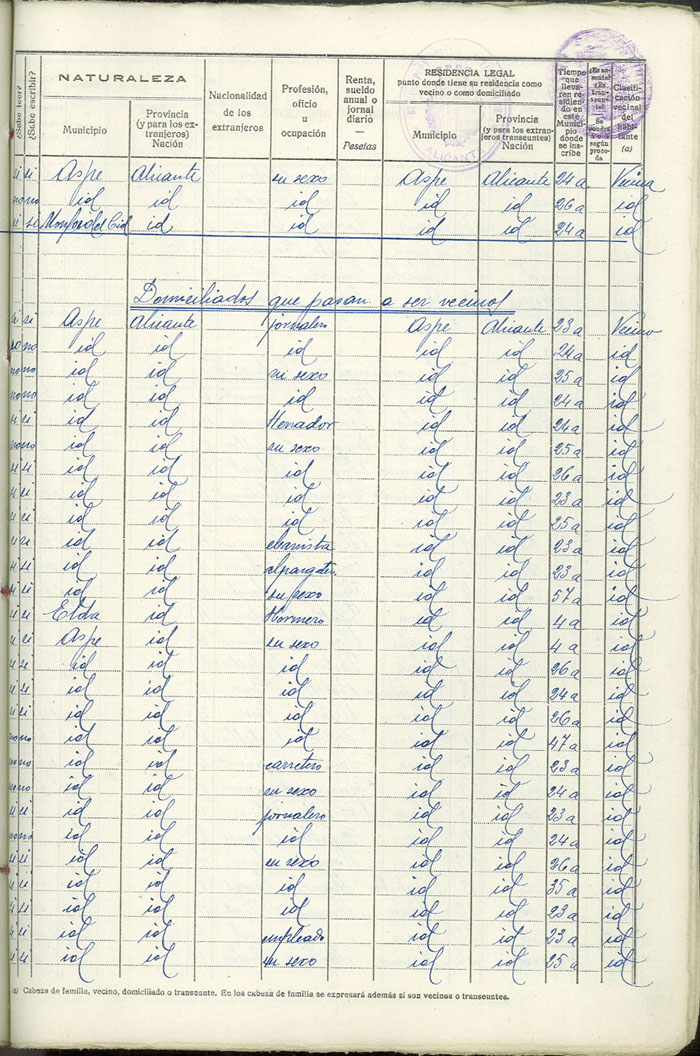 ¿Sabe leer? ¿Sabe escribir? NATURALEZA Municipio Provincia (y para los extranjeros) Nación Nacionalidad de los extranjeros Profesión, oficio u ocupación Renta, sueldo anual o jornal diario — Pesetas RESIDENCIA LEGAL punto donde tiene su residencia como vecino o como domiciliado Municipio Provincia (y para los extranjeros transeuntes) Nación Tiempo que lleva ren residiendo en este Municipio donde se inscribe Clasificación vecinal del habitante (a)
ALICANTE
si si Aspe Alicante su sexo Aspe Alicante 24 a Vecina
no no id id id id id 26 a id
si si Monforte del Cid id id id id 24 a id
Domiciliados que pasan a ser vecinos
si si Aspe Alicante jornalero Aspe Alicante 23 a Vecino
no no id id id id id 24 a id
no no id id su sexo id id 25 a id
no no id id id id id 24 a id
si si id id Herrador id id 24 a id
no no id id su sexo id id 25 a id
si si id id id id id 26 a id
si si id id id id id 23 a id
si si id id id id id 25 a id
si si id id ebanista id id 23 a id
si si id id alpargate. id id 23 a id
si si id id su sexo id id 57 a id
si si Elda id Hormero id id 4 a id
si si Aspe id su sexo id id 4 a id
si si id id id id id 26 a id
si si id id id id id 24 a id
si si id id id id id 26 a id
no no id id id id id 47 a id
no no id id carretero id id 23 a id
no no id id su sexo id id 24 a id
si si id id jornalero id id 23 a id
no no id id id id id 24 a id
si si id id su sexo id id 26 a id
si si id id id id id 35 a id
si si id id id id id 23 a id
si si id id empleado id id 23 a id
si si id id su sexo id id 25 a id
(a) Cabeza de familia, vecino, domiciliado o transeunte. En los cabeza de familia se expresará además si son vecinos o transeuntes.